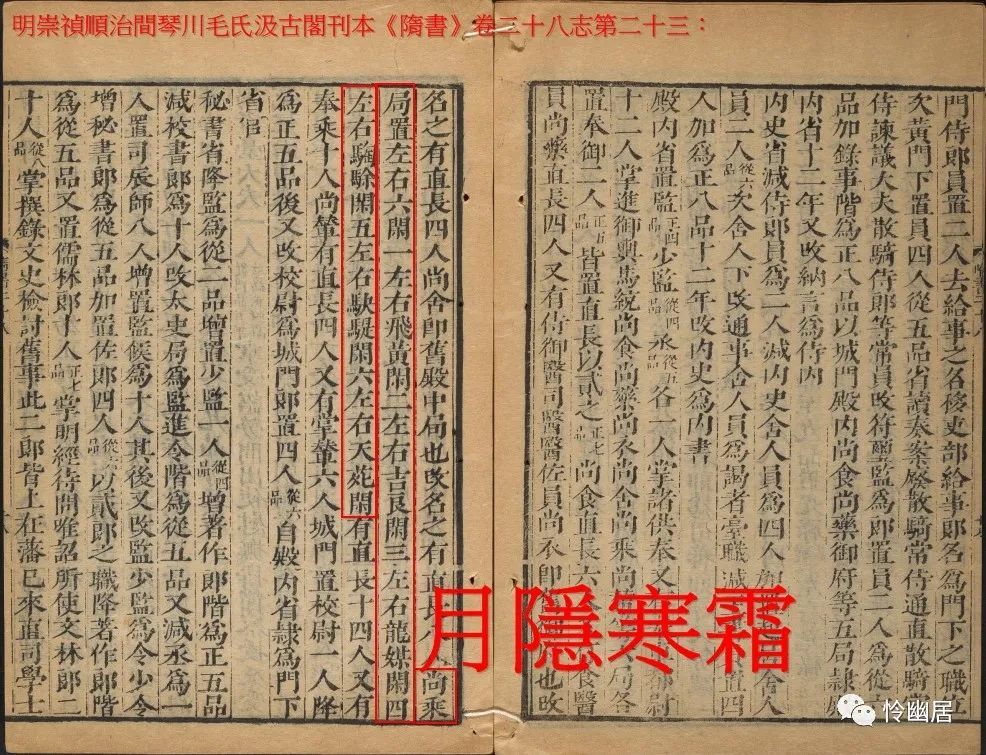 明崇禎順治間琴川毛氏汲古閣刊本《隋書》卷三十八志第二十三：
門侍郎員置二人去給事之名移吏部給事郎名爲門下之職位
次黃門下置員四人從五品省讀奏案廢散騎常侍通直散騎常
侍諫議大夫散騎侍郎等常員改符璽監爲郎置員二人爲從六
品加錄事階爲正八品以城門殿內尚食尚藥御府等五局隸
內省十二年又改納言爲侍內
內史省減侍郎員爲二人減內史舍人員爲四人舍人
員二人從六品次舍人下改通事舍人員爲謁者臺職減四
人加爲正八品十二年改內史爲內書
殿內省置監正四品少監從四品丞從五品各一人掌諸供奉又尉
十二人掌進御輿馬統尚食尚藥尚衣尚舍尚乘尚局各
置奉御二人正五品皆置直長以貳之正七品尚食直長六食醫
員尚藥直長四人又有侍御醫司醫醫佐員尚衣即也改
名之有直長四人尚舍即舊殿中局也改名之有直長八人尚乘
局置左右六閑一左右飛黃閑二左右吉良閑三左右龍媒閑四
左右騊駼閑五左右駃騠閑六左右天苑閑有直長十四人又有
奉乘十人尚輦有直長四人又有掌輦六人城門置校尉一人降
爲正五品後又改校尉爲城門郎置四人從六品自殿內省隸爲門下
省官
秘書省降監爲從二品增置少監一人從四品增著作郎階爲正五品
減校書郎爲十人改太史局爲監進令階爲從五品又減丞爲一
人置司辰師八人增置監候爲十人其後又改監少監爲令少令
增秘書郎爲從五品加置佐郎四人從六品以貳郎之職降著作郎階
爲從五品又置儒林郎十人正七品掌明經待問唯詔所使文林郎二
十人從八品掌撰錄文史檢討舊事此二郎皆上在藩已來直司學士
月隱寒霜
怜幽居